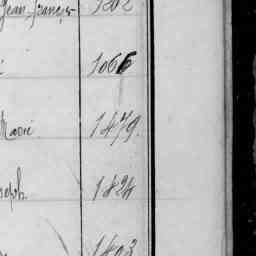 Jean françois 1202
1066
Marie 1479.
oseph 1824
1403